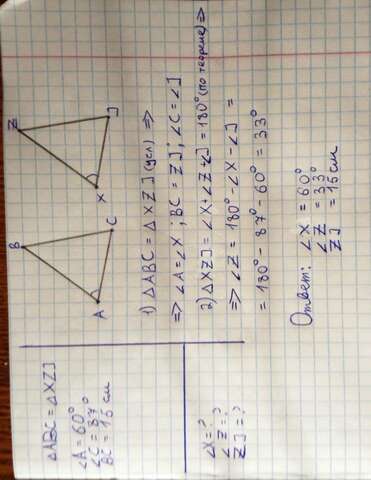 △ABC = △XZJ
∠A = 60°
∠C = 87°
BC = 15 см
∠X = ?
∠Z = ?
ZJ = ?
B
A
C
Z
X
J
1) △ABC = △XZJ (усл) =>
=> ∠A = ∠X ; BC = ZJ ; ∠C = ∠J
2) △XZJ = ∠X + ∠Z + ∠J = 180° (по теореме) =>
=> ∠Z = 180° - ∠X - ∠J =
= 180° - 87° - 60° = 33°
Ответ: ∠X = 60°
∠Z = 33°
ZJ = 15 см